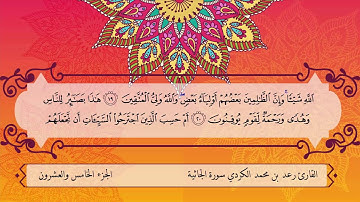 اللَّهِ شَيْئًا ۚ وَإِنَّ الظَّالِمِينَ بَعْضُهُمْ أَوْلِيَاءُ بَعْضٍ ۖ وَاللَّهُ وَلِيُّ الْمُتَّقِينَ ١٩ هَٰذَا بَصَائِرُ لِلنَّاسِ
وَهُدًى وَرَحْمَةٌ لِقَوْمٍ يُوقِنُونَ ٢٠ أَمْ حَسِبَ الَّذِينَ اجْتَرَحُوا السَّيِّئَاتِ أَنْ نَجْعَلَهُمْ
القارئ رعد بن محمد الكردي سورة الجاثية
الجزء الخامس والعشرون